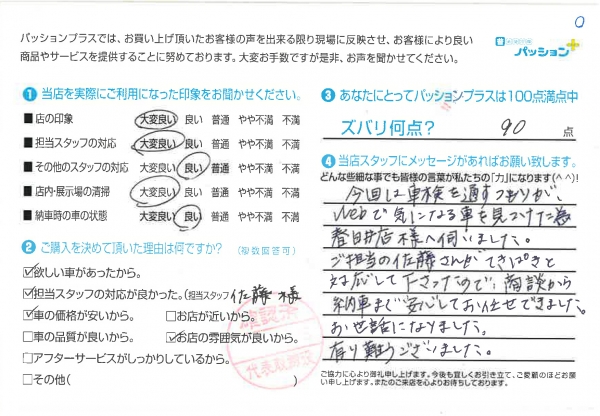 0
パッションプラスでは、お買い上げ頂いたお客様の声を出来る限り現場に反映させ、お客様により良い
商品やサービスを提供することに努めております。大変お手数ですが是非、お声を聞かせてください。
パッション
1 当店を実際にご利用になった印象をお聞かせください。
■店の印象 大変良い 良い 普通 やや不満 不満
■担当スタッフの対応 大変良い 良い 普通 やや不満 不満
■その他のスタッフの対応 大変良い 良い 普通 やや不満 不満
■店内・展示場の清掃 大変良い 良い 普通 やや不満 不満
■納車時の車の状態 大変良い 良い 普通 やや不満 不満
2 ご購入を決めて頂いた理由は何ですか? (複数回答可)
☑欲しい車があったから。
☑担当スタッフの対応が良かった。(担当スタッフ 佐藤 様
☑車の価格が安いから。 □お店が近いから。
□車の品質が良いから。 ☑お店の雰囲気が良いから。
□アフターサービスがしっかりしているから。
□その他( )
確認済
代表取締役
3 あなたにとってパッションプラスは100点満点中
ズバリ何点? 90 点
4 当店スタッフにメッセージがあればお願い致します。
どんな些細な事でも皆様の言葉が私たちの「力」になります(^^)!
今回は車検を通すつもりが、
Webで気になる車を見つけた為
春日井店様へ伺いました。
ご担当の佐藤さんがてきぱきと
対応して下さったので、商談から
納車まで安心してお任せできました。
お世話になりました。
有り難うございました。
ご協力に心より御礼申し上げます。今後も宜しくお引き立て、ご愛顧のほどお願
い申し上げます。またのご来店を心よりお待ちしております。